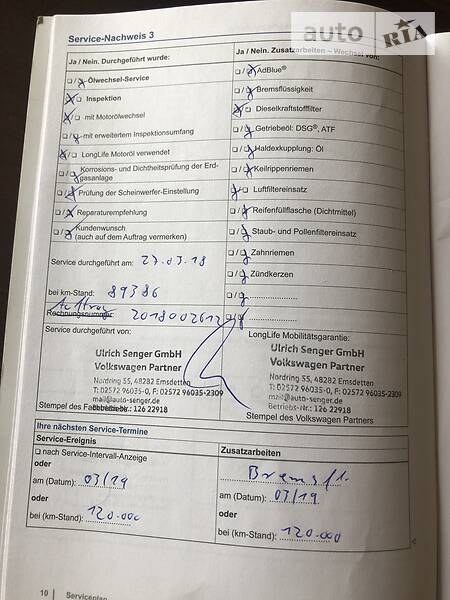 auto RIA
Service-Nachweis 3
Ja / Nein. Durchgeführt wurde:
❑ / ❑ Ölwechsel-Service
❑ / ❑ Inspektion
❑ / ❑ mit Motorölwechsel
❑ / ❑ mit erweitertem Inspektionsumfang
❑ / ❑ LongLife Motoröl verwendet
❑ / ❑ Korrosions- und Dichtheitsprüfung der Erd-
gasanlage
❑ / ❑ Prüfung der Scheinwerfer-Einstellung
❑ / ❑ Reparaturempfehlung
❑ / ❑ Kundenwunsch
(auch auf dem Auftrag vermerken)
Service durchgeführt am: 27.03.18
bei km-Stand: 89386
Auftrag
Rechnungsnummer 2018002612
Service durchgeführt von:
Ulrich Senger GmbH
Volkswagen Partner
Nordring 55, 48282 Emsdetten
T: 02572 96035-0, F: 02572 96035-2309
mail@auto-senger.de
Betriebs-Nr.: 126 22918
Stempel des Fachbetriebs
Ja / Nein. Zusatzarbeiten – Wechsel von:
❑ / ❑ AdBlue®
❑ / ❑ Bremsflüssigkeit
❑ / ❑ Dieselkraftstofffilter
❑ / ❑ Getriebeöl: DSG®, ATF
❑ / ❑ Haldexkupplung: Öl
❑ / ❑ Keilrippenriemen
❑ / ❑ Luftfiltereinsatz
❑ / ❑ Reifenfüllflasche (Dichtmittel)
❑ / ❑ Staub- und Pollenfiltereinsatz
❑ / ❑ Zahnriemen
❑ / ❑ Zündkerzen
❑ / ❑ ....................
❑ / ❑ ....................
LongLife Mobilitätsgarantie:
Ulrich Senger GmbH
Volkswagen Partner
Nordring 55, 48282 Emsdetten
T: 02572 96035-0, F: 02572 96035-2309
mail@auto-senger.de
Betriebs-Nr.: 126 22918
Stempel des Volkswagen Partners
Ihre nächsten Service-Termine
Service-Ereignis
❑ nach Service-Intervall-Anzeige
oder
am (Datum): 03/19
oder
bei (km-Stand): 120.000
Zusatzarbeiten
Bremsfl.
am (Datum): 03/19
oder
bei (km-Stand): 120.000
10 | Serviceplan